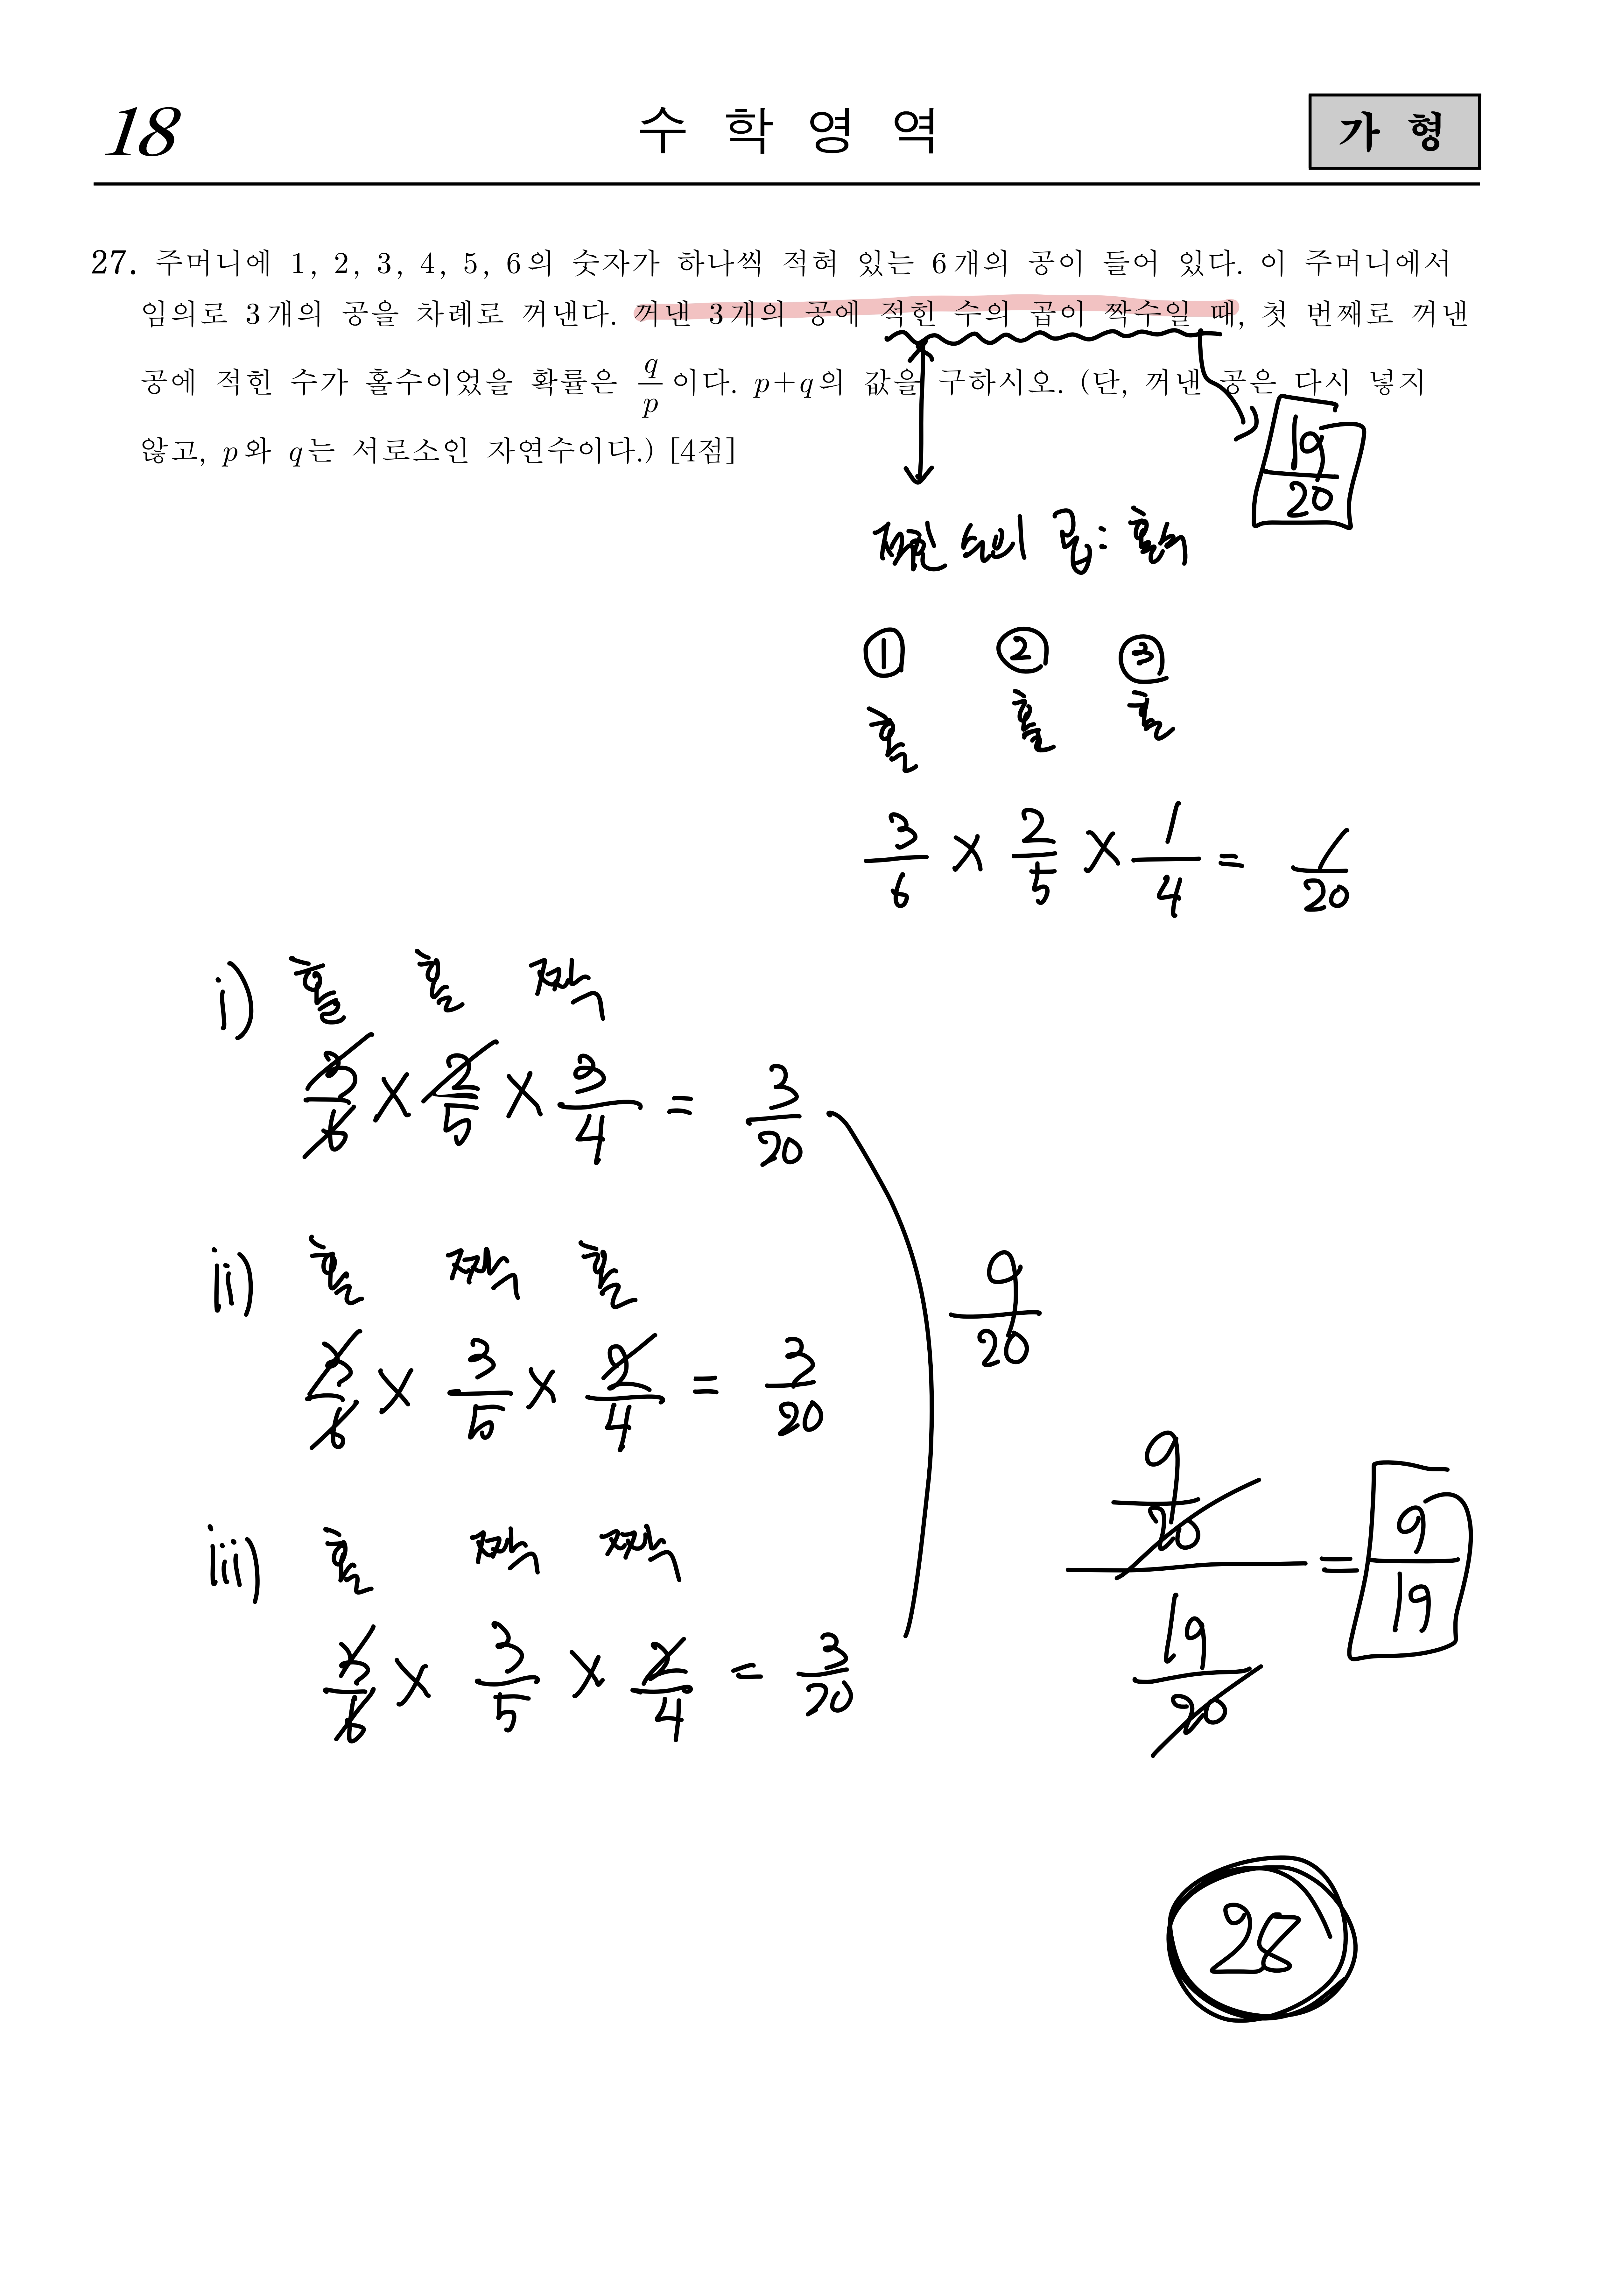 18 수 학 영 역 가 형
27. 주머니에 1, 2, 3, 4, 5, 6의 숫자가 하나씩 적혀 있는 6개의 공이 들어 있다. 이 주머니에서
임의로 3개의 공을 차례로 꺼낸다. 꺼낸 3개의 공에 적힌 수의 곱이 짝수일 때, 첫 번째로 꺼낸
공에 적힌 수가 홀수이었을 확률은 q/p 이다. p+q의 값을 구하시오. (단, 꺼낸 공은 다시 넣지
않고, p와 q는 서로소인 자연수이다.) [4점]
19/20
적힌 수의 곱: 홀수
① ② ③
홀 홀 홀
3/6 × 2/5 × 1/4 = 1/20
i) 홀 홀 짝
3/6 × 2/5 × 3/4 = 3/20
ii) 홀 짝 홀
3/6 × 3/5 × 2/4 = 3/20
9/20
iii) 홀 짝 짝
3/6 × 3/5 × 2/4 = 3/20
9/20 / 19/20 = 9/19
28